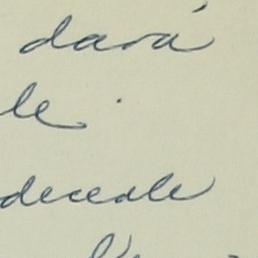 dará
le.
decedle